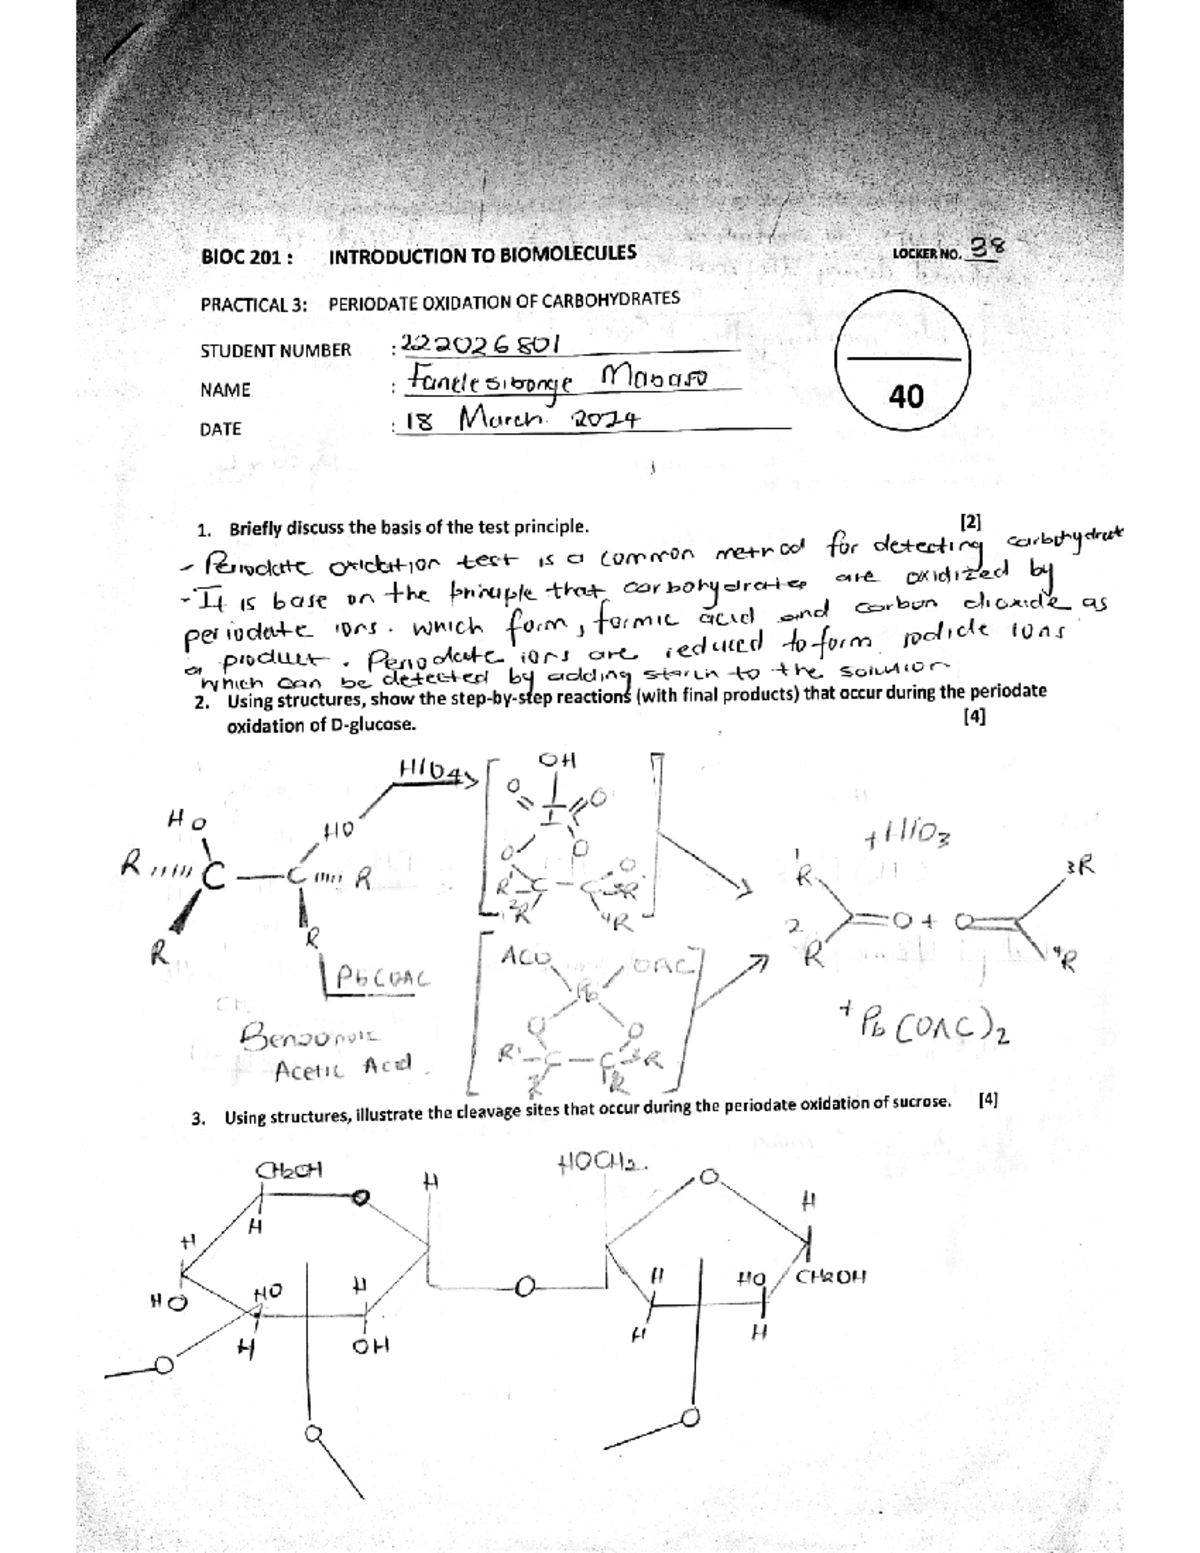 BIOC 201 : INTRODUCTION TO BIOMOLECULES LOCKER NO. 38
PRACTICAL 3: PERIODATE OXIDATION OF CARBOHYDRATES
STUDENT NUMBER : 222026801
NAME : Fanelesibonge Mabaso
DATE : 18 March 2024
40
1. Briefly discuss the basis of the test principle. [2]
- Periodate oxidation test is a common method for detecting carbohydrate
- It is base on the principle that carbohydrates are oxidized by
periodate ions. which form, formic acid and carbon dioxide as
a product. Periodate ions are reduced to form iodide ions
which can be detected by adding starch to the solution
2. Using structures, show the step-by-step reactions (with final products) that occur during the periodate
oxidation of D-glucose. [4]
HIO4 OH
O O
HO HO I +HIO3
O O O 1 3R
R C C R R' C C 3R R O + O
R R 2R 4R 2 R 4R
PbCOAC ACO OAC
Pb + Pb (OAC)2
O O
Acetic Acid R' C C 3R
2R R
3. Using structures, illustrate the cleavage sites that occur during the periodate oxidation of sucrose. [4]
CH2OH H HOCH2. O
O H
H H
HO HO H H HO CH2OH
O
H OH H H
O
O O